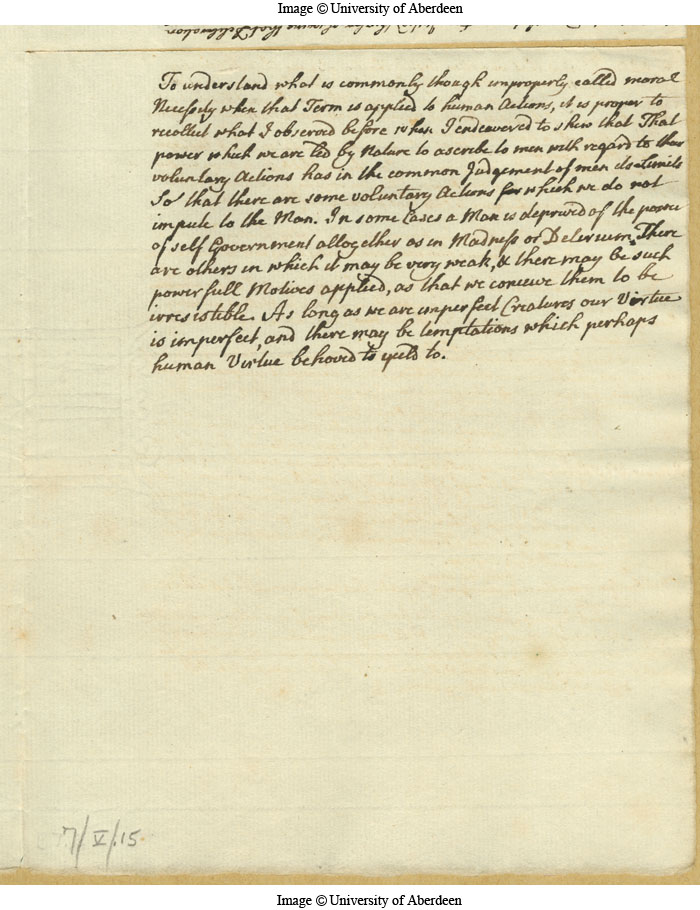 Image © University of Aberdeen
To understand what is commonly though improperly called moral
Necessity when that Term is applied to human Actions, it is proper to
recollect what I observed before when I endeavored to shew that That
power which we are led by Nature to ascribe to men with regard to their
voluntary Actions has in the common Judgement of men its Limits
So that there are some voluntary Actions for which we do not
impute to the Man. In some Cases a Man is deprived of the power
of self Government altogether as in Madness or Delirium. There
are others in which it may be very weak, & there may be such
powerfull Motives applied, as that we conceive them to be
irresistible. As long as we are imperfect Creatures our Virtue
is imperfect, and there may be temptations which perhaps
human Virtue behoved to yeeld to.
7/V/.15
Image © University of Aberdeen